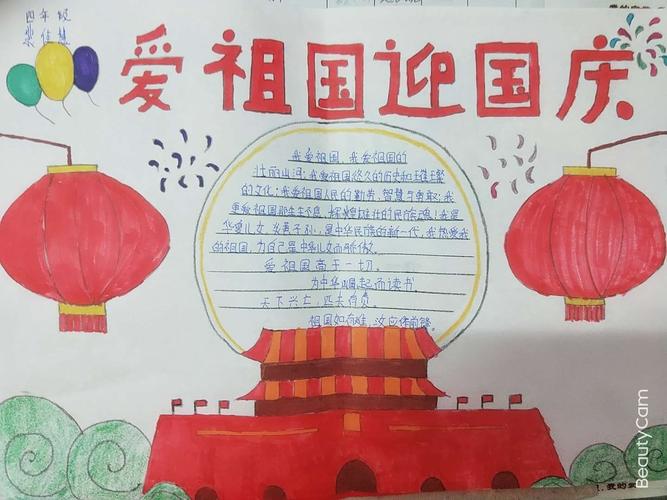 四年级
爱祖国迎国庆
我爱祖国，我爱祖国的
壮丽山河；我爱祖国悠久的历史和璀璨
的文化；我爱祖国人民的勤劳、智慧与勇敢；我
更爱祖国那生生不息，辉煌雄壮的民族魂！我是
华夏儿女，炎黄子孙，是中华民族的新一代，我热爱我
的祖国，为自己是中华儿女而骄傲。
爱祖国高于一切。
为中华崛起而读书
天下兴亡，匹夫有责
祖国如有难，汝应作前锋。
BeautyCam
1.我的